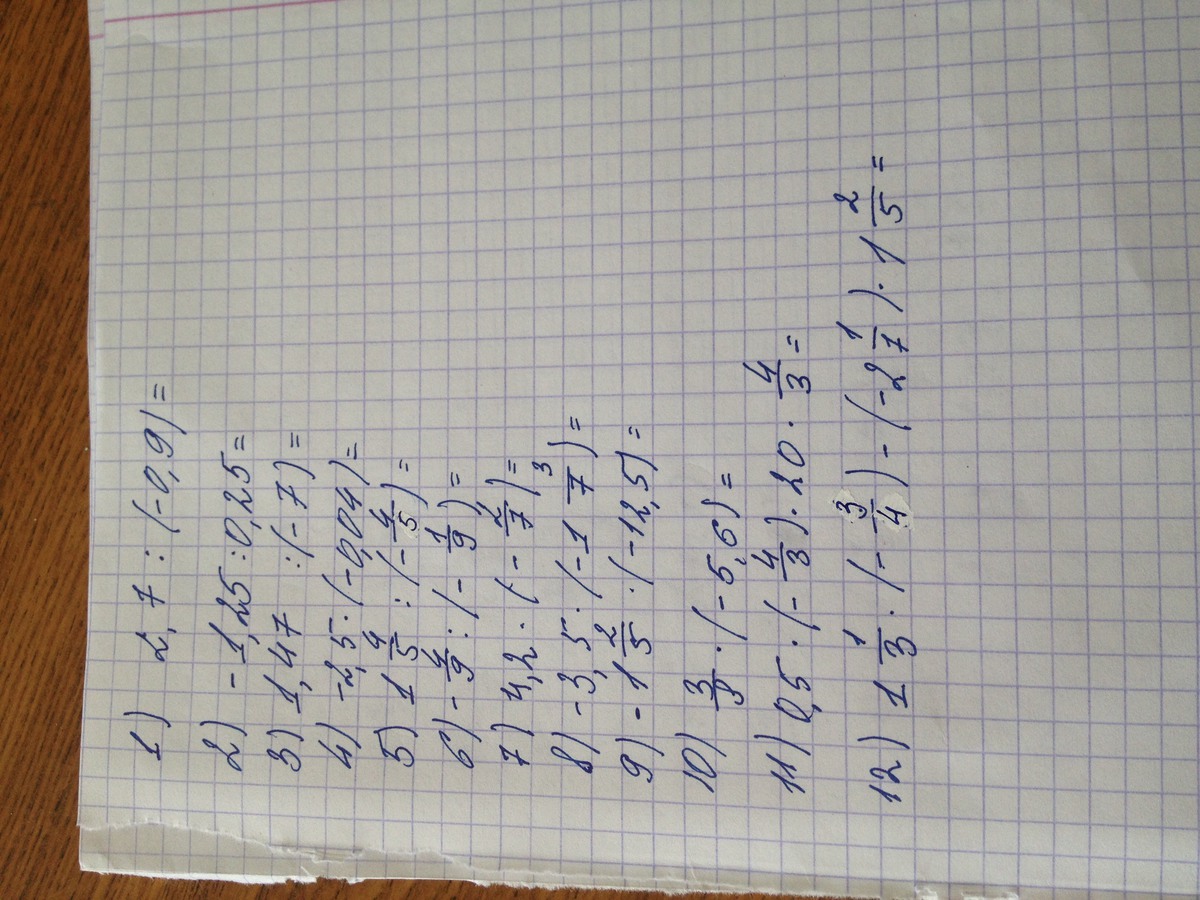 1) 2,7 : (-0,9) =
2) -1,25 : 0,25 =
3) -1,47 : (-7) =
4) -2,5 : (-0,04) =
5) 1 4/5 : (-4/5) =
6) -4/9 : (-1/9) =
7) 4,2 · (-2/7) =
8) -3,5 · (-1 3/7) =
9) -1 2/5 · (-12,5) =
10) · (-5,6) =
11) 0,5 · (-4/3) · 20 · 4/3 =
12) 1 1/3 · (-3/4) - (-2 1/7) · 1 2/5 =